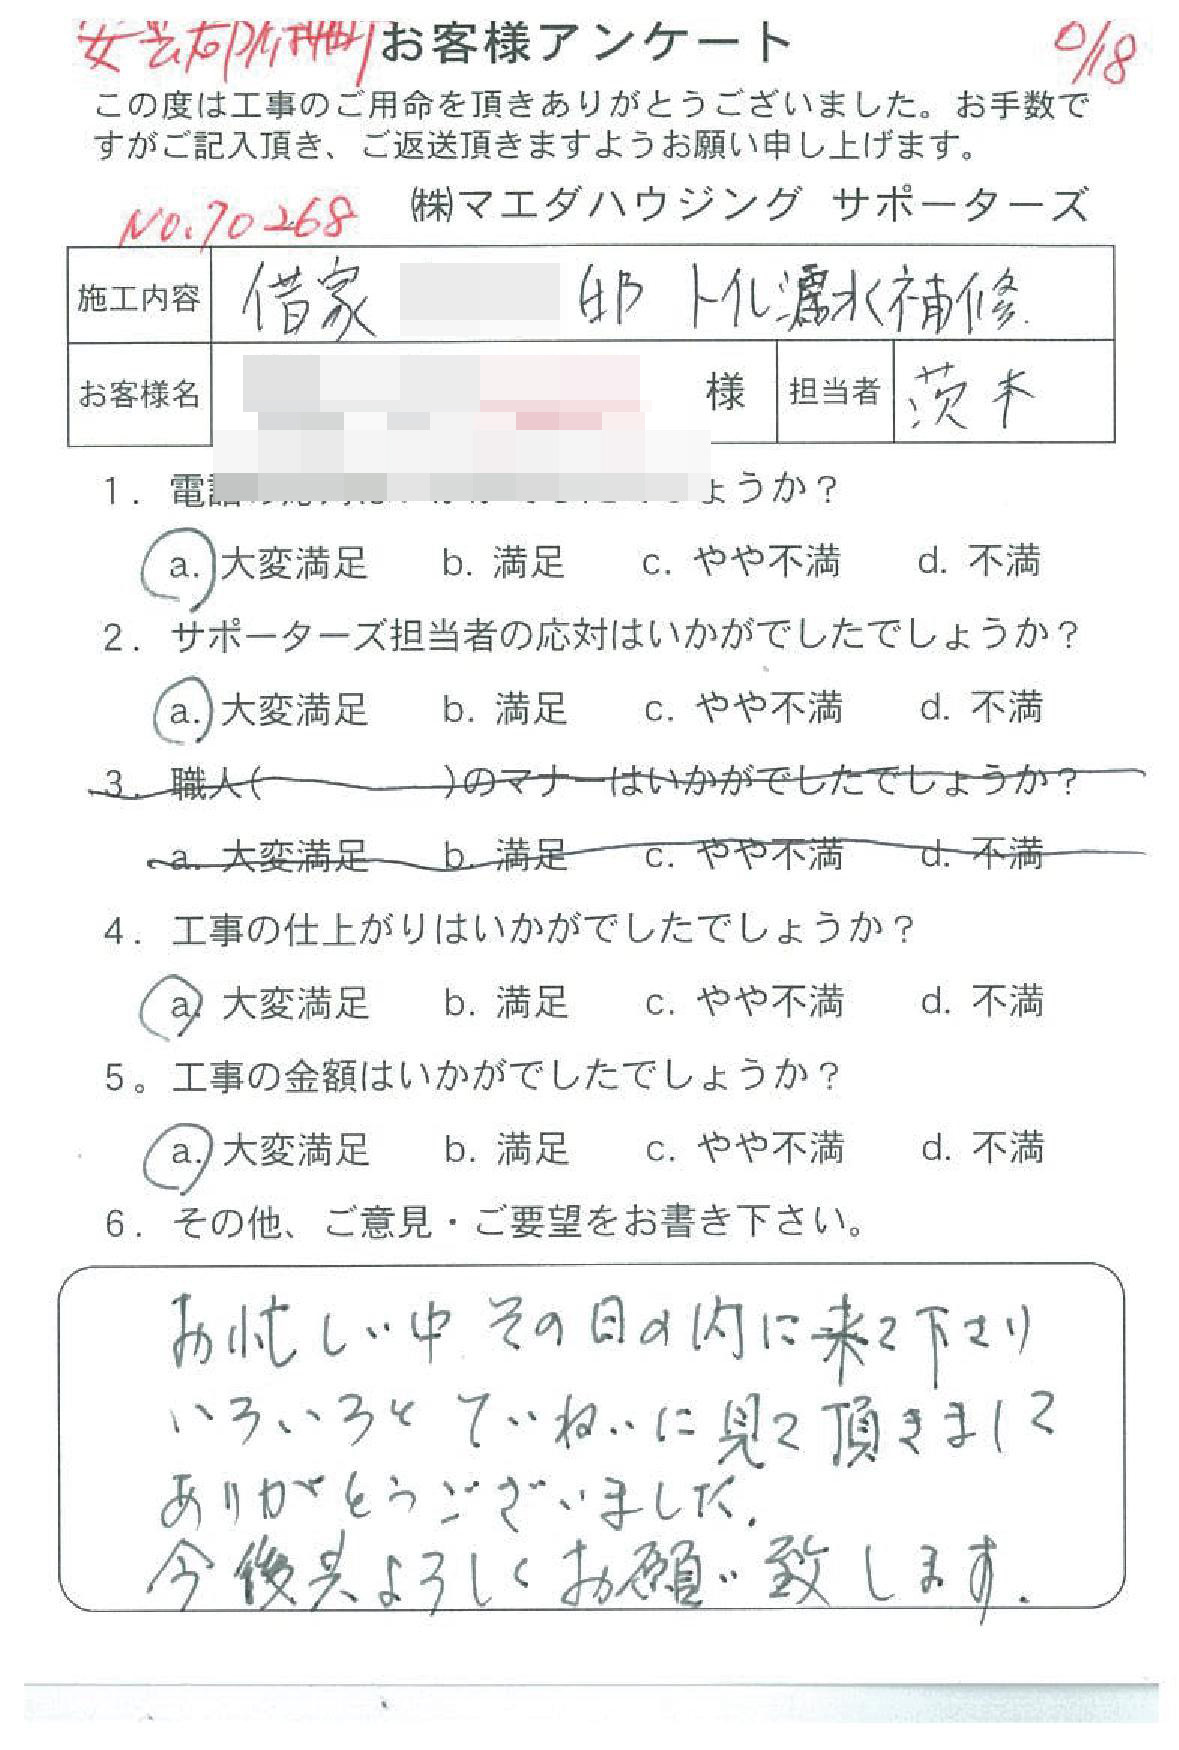 お客様アンケート
この度は工事のご用命を頂きありがとうございました。お手数で
すがご記入頂き、ご返送頂きますようお願い申し上げます。
No.70268 ㈱マエダハウジング サポーターズ
施工内容 借家 邸 トイレ漏水補修
お客様名 様 担当者 茨木
1. 電話 ょうか？
a. 大変満足 b. 満足 c. やや不満 d. 不満
2. サポーターズ担当者の応対はいかがでしたでしょうか？
a. 大変満足 b. 満足 c. やや不満 d. 不満
3. 職人( )のマナーはいかがでしたでしょうか？
a. 大変満足 b. 満足 c. やや不満 d. 不満
4. 工事の仕上がりはいかがでしたでしょうか？
a. 大変満足 b. 満足 c. やや不満 d. 不満
5。工事の金額はいかがでしたでしょうか？
a. 大変満足 b. 満足 c. やや不満 d. 不満
6. その他、ご意見・ご要望をお書き下さい。
お忙しい中 その日の内に来て下さり
いろいろと ていねいに見て頂きまして
ありがとうございました.
今後共よろしくお願い致します.